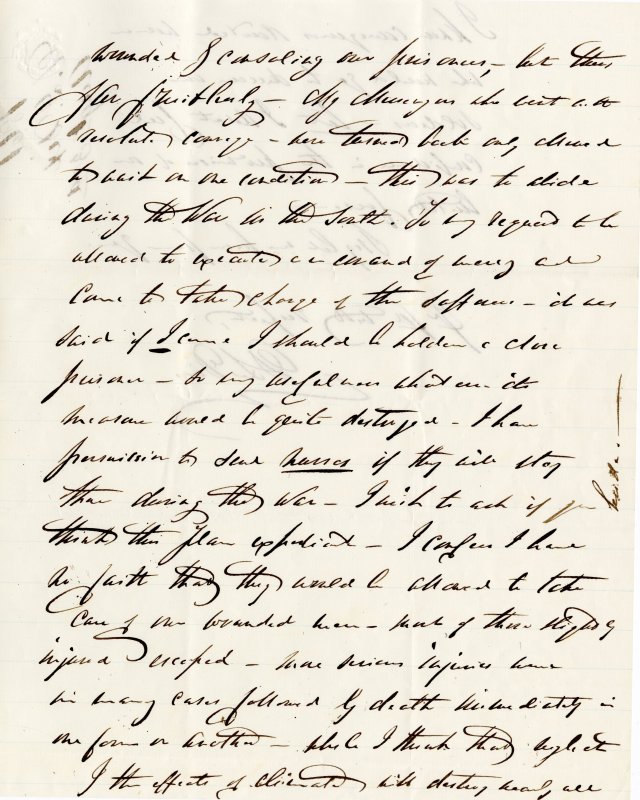 wounded & consoling our prisoners, - but thus
far fruitlessly - My Messengers who went with
resolute courage - were turned back only allowed
to wait on one condition - this was to abide
during the War in the South. To my request to be
allowed to execute an errand of mercy and
come to take charge of the sufferers - it was
said if I came I should be holden a close
prisoner - so my usefulness whatever its
measure would be quite destroyed - I have
permission to send nurses if they will stop
there during the War - I wish to ask if you
think this plan expedient - I confess I have
no faith that they would be allowed to take
care of our wounded men - most of those slightly
injured escaped - more serious injuries were
in many cases followed by death immediately in
one form or another - while I think that neglect
& the effects of climate will destroy nearly all